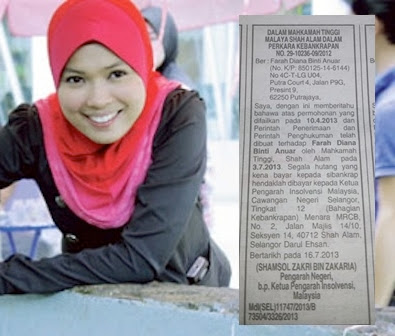 DALAM MAHKAMAH TINGGI
MALAYA SHAH ALAM DALAM
PERKARA KEBANKRAPAN
NO. 29-10236-09/2012
Ber : Farah Diana Binti Anuar
(No. K/P: 850125-14-6144)
No 4C-T-LG U04.
Putra Court 4, Jalan P9G,
Presint 9,
62250 Putrajaya.
Saya, dengan ini memberitahu
bahawa atas permohonan yang
difailkan pada 10.4.2013 dan
Perintah Penerimaan dan
Perintah Penghukuman telah
dibuat terhadap Farah Diana
Binti Anuar oleh Mahkamah
Tinggi, Shah Alam pada
3.7.2013. Segala hutang yang
kena bayar kepada sibankrap
hendaklah dibayar kepada Ketua
Pengarah Insolvensi Malaysia,
Cawangan Negeri Selangor,
Tingkat 12 (Bahagian
Kebankrapan) Menara MRCB,
No. 2, Jalan Majlis 14/10,
Seksyen 14, 40712 Shah Alam,
Selangor Darul Ehsan.
Bertarikh pada 16.7.2013
(SHAMSOL ZAKRI BIN ZAKARIA)
Pengarah Negeri,
b.p. Ketua Pengarah Insolvensi,
Malaysia
Mdi(SEL)11747/2013/B
73504/3326/2013